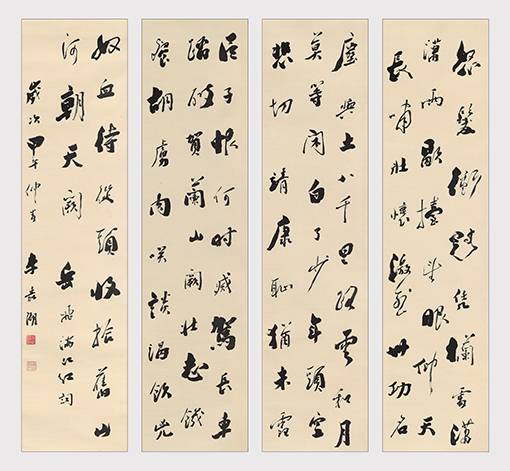 怒髮衝冠憑欄處瀟
瀟雨歇擡望眼仰天
長嘯壯懷激烈卅功名
塵與土八千里路雲和月
莫等閑白了少年頭空
悲切靖康恥猶未雪
臣子恨何時滅駕長車
踏破賀蘭山闕壯志饑
餐胡虜肉笑談渴飲匈
奴血待從頭收拾舊山
河朝天闕 岳飛滿江紅詞
歲次甲午仲 李